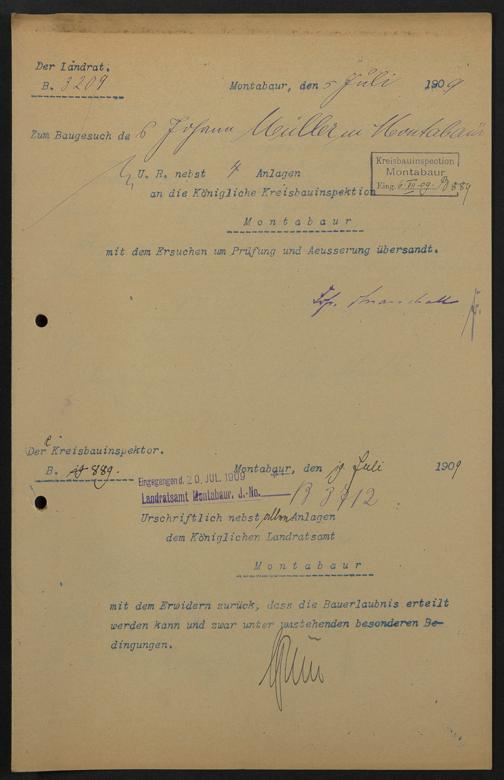 Der Landrat.
B. 3209
Montabaur, den 5 Juli 1909
Zum Baugesuch des Johann Müller in Montabaur
U. R. nebst 4 Anlagen
an die Königliche Kreisbauinspektion
Kreisbauinspection
Montabaur
Eing. 6. VII. 09. B 889
Montabaur
mit dem Ersuchen um Prüfung und Aeusserung übersandt.
Der Kreisbauinspektor.
B. 889.
Montabaur, den 19 Juli 1909
Eingegangen d. 20. JUL. 1909
Landratsamt Montabaur. J.-No.
Urschriftlich nebst allen Anlagen
dem Königlichen Landratsamt
Montabaur
mit dem Erwidern zurück, dass die Bauerlaubnis erteilt
werden kann und zwar unter umstehenden besonderen Be-
dingungen.